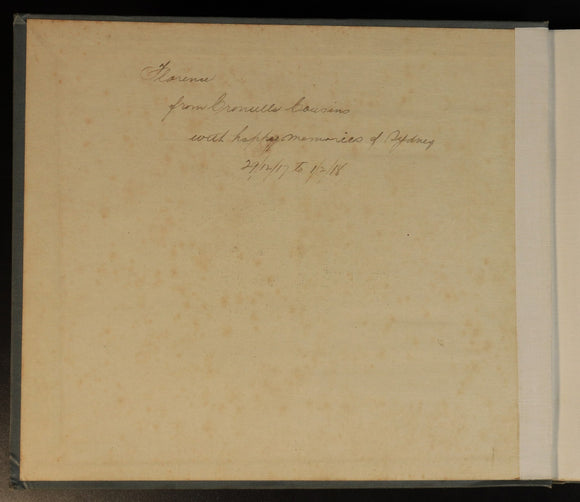 Florence
from Cronulla Cousins
with happy memories of Sydney
24/12/17 to 1/2/18